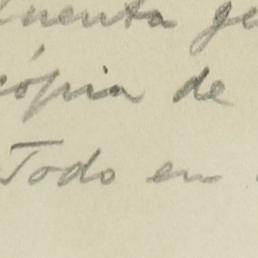 cuenta ge
cópia de
Todo en